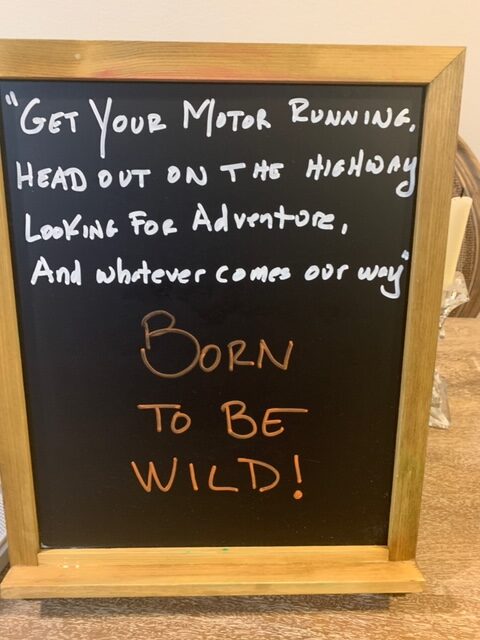 "Get Your Motor Running,
Head out on the Highway
Looking For Adventure,
And whatever comes our way"
Born
To Be
Wild!